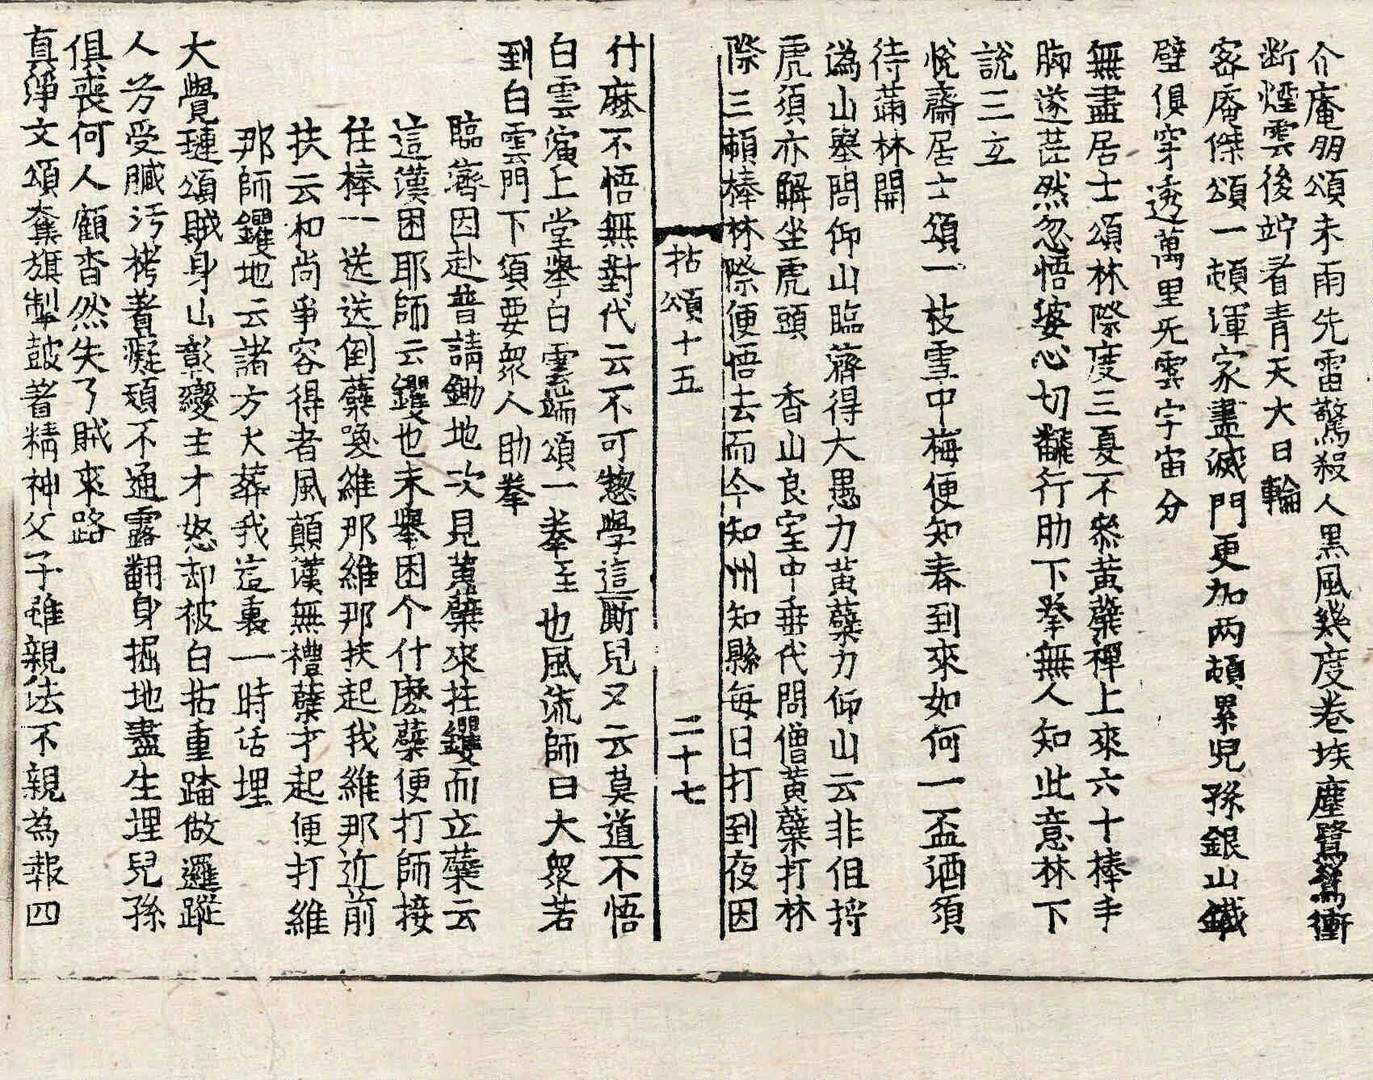 介庵朋頌未雨先雷驚殺人黑風幾度卷埃塵鷺鴛衝
断煙雲後竚看青天大日輪
密庵傑頌一頓渾家盡滅門更加兩頓累兒孫銀山鐵
壁俱穿透萬里无雲宇宙分
無盡居士頌林際度三夏不叅黃蘗禪上來六十棒手
脚遂茫然忽悟婆心切翻行肋下拳無人知此意林下
說三玄
悅齋居士頌一枝雪中梅便知春到來如何一盃酒須
待滿林開
溈山擧問仰山臨濟得大愚力黃蘗力仰山云非但捋
虎須亦解坐虎頭　香山良室中垂代問僧黃蘗打林
際三頓棒林際便悟去而今知州知縣每日打到夜因
拈頌十五　二十七
什麽不悟無對代云不可惣學這厮兒又云莫道不悟
白雲演上堂擧白雲端頌一拳至也風流師曰大衆若
到白雲門下須要衆人助拳
臨濟因赴普請鋤地次見黃蘗來拄钁而立蘗云
這漢困耶師云钁也未擧困个什麽蘗便打師接
住棒一送送倒蘗喚維那維那扶起我維那近前
扶云和尚爭容得者風顛漢無禮蘗才起便打維
那師钁地云諸方火葬我這裏一時活埋
大覺璉頌賊身山彰變主才怒却被白拈重踏做邏蹤
人芳受贓汚栲著癡頑不通露翻身掘地盡生埋兒孫
俱喪何人顧杳然失了賊來路
真淨文頌奪旗掣皷著精神父子雖親法不親為報四